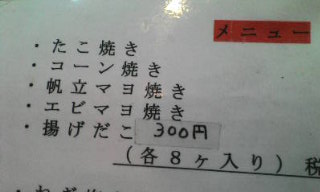 メニュー
・たこ焼き
・コーン焼き
・帆立マヨ焼き
・エビマヨ焼き
・揚げだこ 300円
(各8ヶ入り) 税